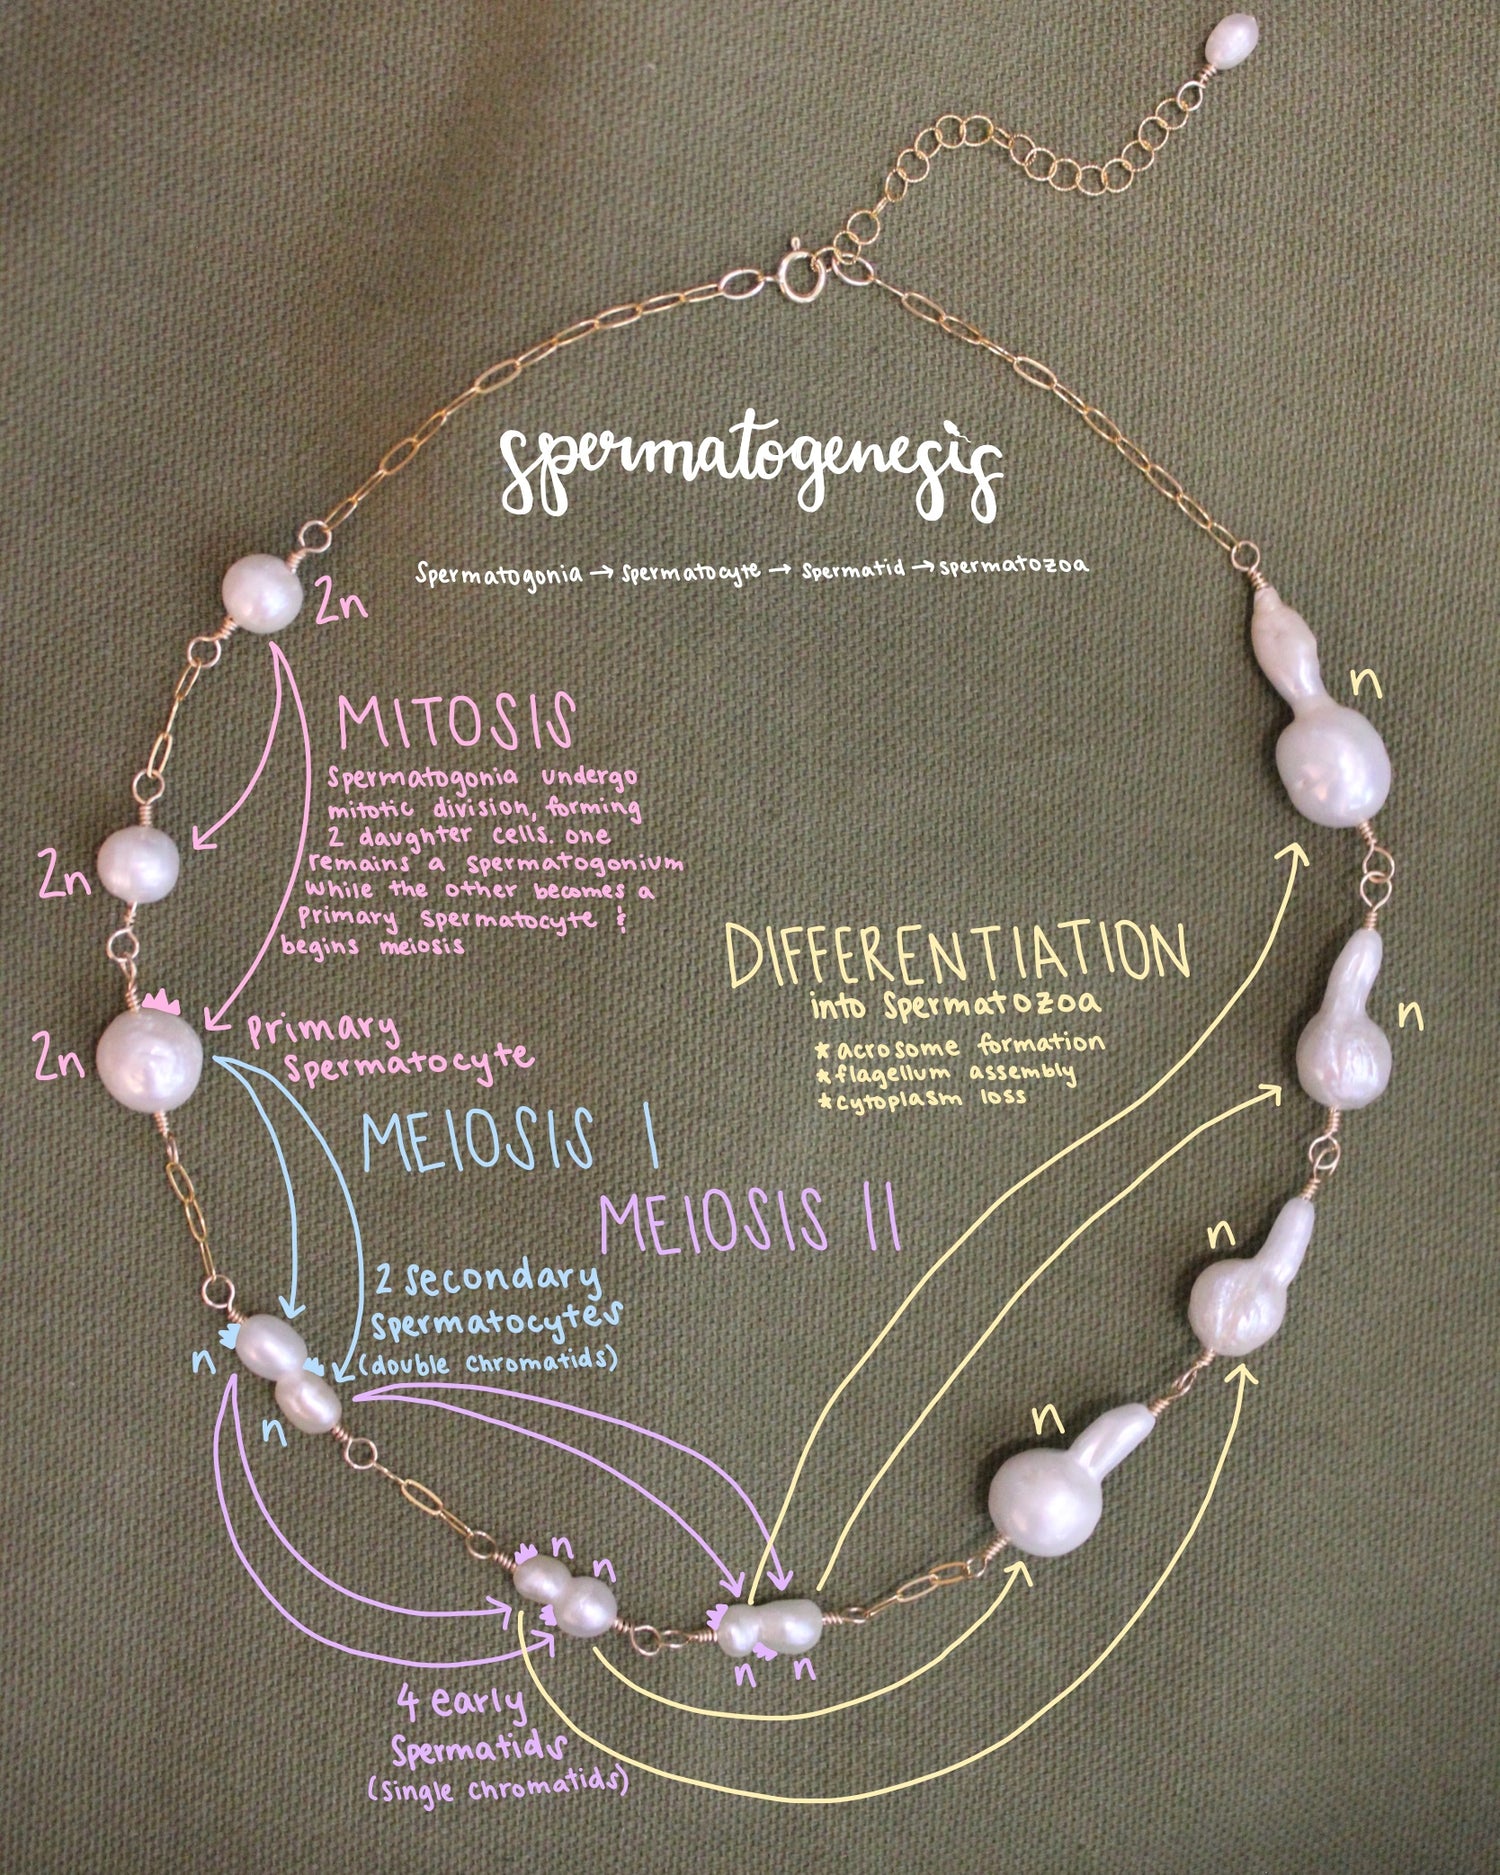 spermatogenesis
Spermatogonia → spermatocyte → spermatid → spermatozoa
2n
MITOSIS
Spermatogonia undergo
mitotic division, forming
2 daughter cells. one
remains a spermatogonium
while the other becomes a
primary spermatocyte &
begins meiosis
2n
2n
primary
spermatocyte
MEIOSIS I
MEIOSIS II
2 secondary
spermatocytes
(double chromatids)
n
n
n
n
n
n
4 early
spermatids
(single chromatids)
DIFFERENTIATION
into spermatozoa
* acrosome formation
* flagellum assembly
* cytoplasm loss
n
n
n
n